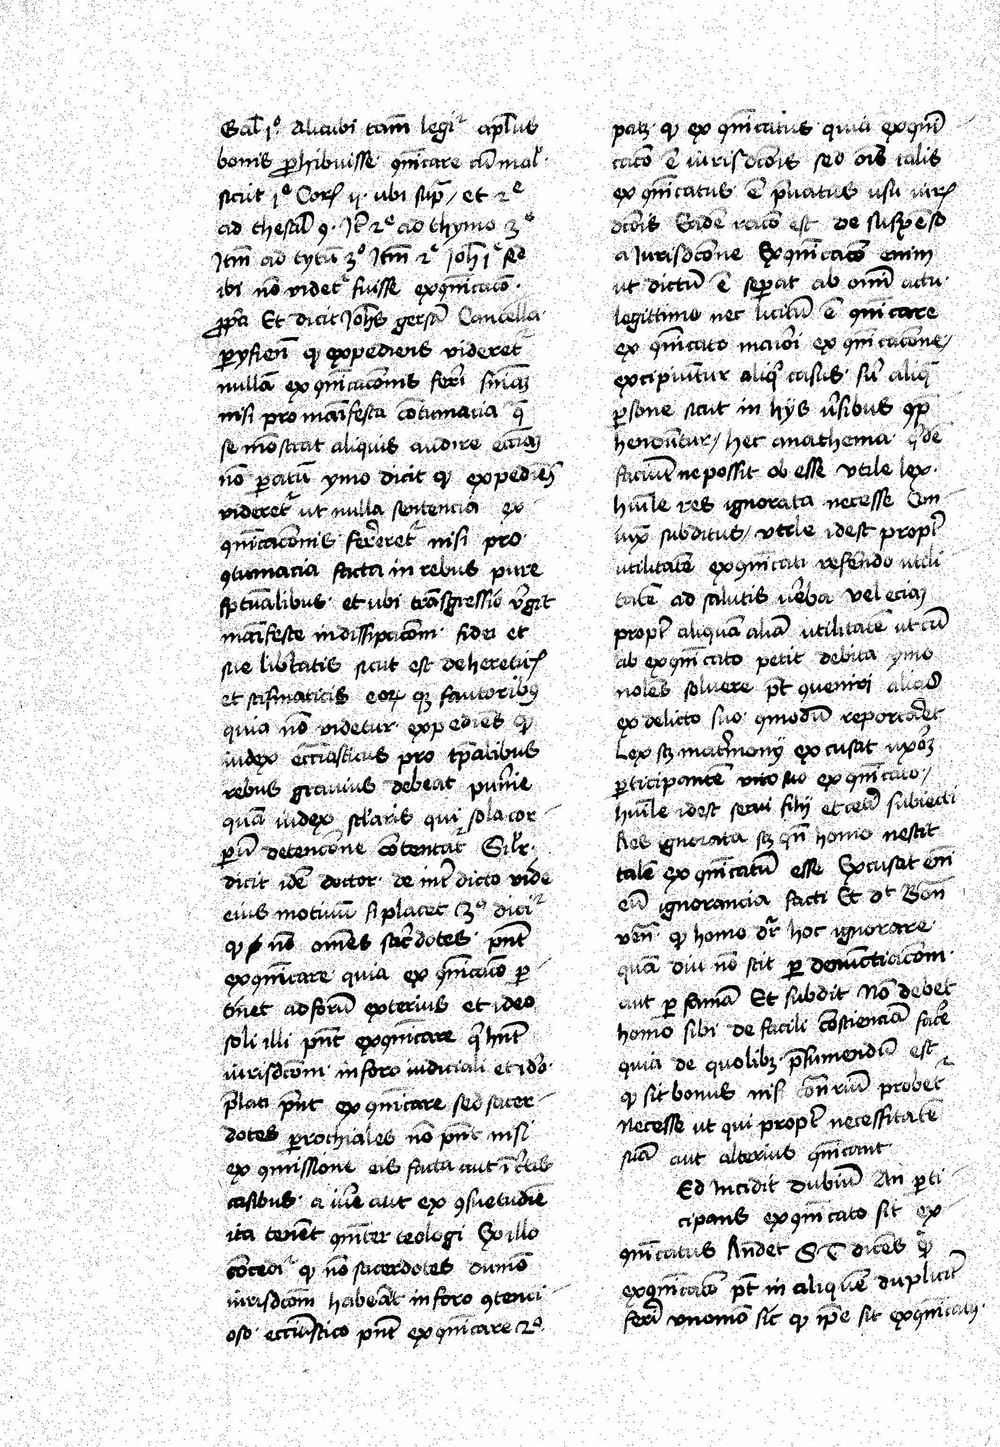 Gal̄ j° Alicubi tam̄ legiᵗ apl̄us
bonis ꝓhibuisse qm̄icare cū mal̓
sicut jᵉ Corꝝ ij ubi supᷓ / et 2ᵉ
ad thesal̄ 9· Jt̄ 2ᵉ ad thymo 3°
Jtm̄ ad tytū 3° Jtm̄ 2ᵉ Joh̄ jᵉ sed
ibi nō videtᷣ fuisse exqm̄icacō
ꝓp̄a Et dicit Joh̄s gersā Cancella
pyſien̄ ꝙ expediens videretᷣ
nullā ex qm̄icacōnis ferri sn̄iaꝫ
nisi pro māifesta cōtumacia qᷓ
se mōstrat aliquis audire ecciaꝫ
nō ꝑatū ymo dicit ꝙ expediēs
videretᷣ ut nulla sentencia ex
qm̄icacōnis ferretᷣ nisi pro
ꝯtumacia facta in rebus pure
sp̄tualibus et ubi transgressio v̓git
māifeste in dissipacōem fidei et
sue lib̓tatis sicut est de hereticꝝ
et scismaticis eoꝝ qꝫ fautoribꝰ
quia nō videtur expediēs ꝙ
iudex eccl̄iasticus pro tp̄alibus
rebus grauius debeat punire
quā iudex scl̓aris qui sola cor
ꝑū detencōne cōtentatᷣ Sil̓r
dicit idē doctor de int̓dicto vide
eius motiuū si placet 3° diciᵗ
ꝙ nō omēs sac̓dotes pn̄t
exqm̄icare quia ex qm̄icacō ꝑ
tinet ad forū exterius et ideo
soli illi pn̄t exqm̄icare qͥ hn̄t
iurisdcōem in foro iudiciali et ido
p̄lati pn̄t ex qm̄icare sed sacer
dotes ꝑrochiales nō pn̄t nisi
ex ꝯmissione eis facta aut ī c̓tis
casibus a iure aut ex ꝯsuetudīe
ita tenēt qm̄ter teologi Ex illo
cōcediᵗ ꝙ nō sacerdotes dūmō
iurisdcōem habeāt in foro ꝯtenci
oso eccl̄iastico pn̄t ex qm̄icare 2°
patꝫ ꝙ ex qm̄icatus quia exqm̄i
cacō ē iurisdcōis sed ois talis
ex qm̄icatus ē p̓uatus usu iurꝭ
dcōis Eadē racō est de suspēso
a Jurisdcōne Exqm̄icacō enim
ut dictū ē sepat ab omī actu
legittimo nec licitū ē qm̄icare
ex qm̄icato maiori ex qm̄icacōne /
excipiuntur aliqͥ casus sūt aliqᷓ
ꝑsone sicut in hijs v̓sibus ꝯp̄
hendūtur / hec anathema qͥdē
faciūt ne possit ob esse vtile lex
hūile res ignorata necesse Con
iux subditus / vtile idest propt̓
utilitatē exqm̄icati refendo utili
tatē ad salutis v̓ba vel eciaꝫ
propt̓ aliquā aliā utilitatē ut cū
ab exqm̄icato petit debita ymo
nolēs soluere pt̄ ꝯueniri aliqͦd
ex delicto suo qmodū reportaret
Lex sꝫ mat̓mony excusat uxoꝫ
ꝑticipantē viro suo exqm̄icato /
hūile idest serui filij et cetī subiecti
Res ignorata sꝫ qn̄ homo nescit
talē ex qm̄icatū esse Excusat em̄
eū ignorancia facti Et dᵗ Bon̄
ven̄ ꝙ homo dr̄ hoc ignorare
quā diu nō scit ꝑ denūctiacōem
aut ꝑ famā Et subdit Nō debet
homo sibi de facili cōscienciā fac̓e
quia de quolibꝫ p̄sumendū est
ꝙ sit bonus nisi con̄riū probetᷣ
Necesse ut qui propt̓ necessitatē
suā aut alterius qm̄icant
Ed Incidit dubiū An ꝑti
cipans exqm̄icato sit ex
qm̄icatus Rn̄det S T dicēs ꝙ
exqm̄icacō pt̄ in aliquē duplicit̓
ferri vnomō sic ꝙ ip̄e sit exqm̄icatꝰ